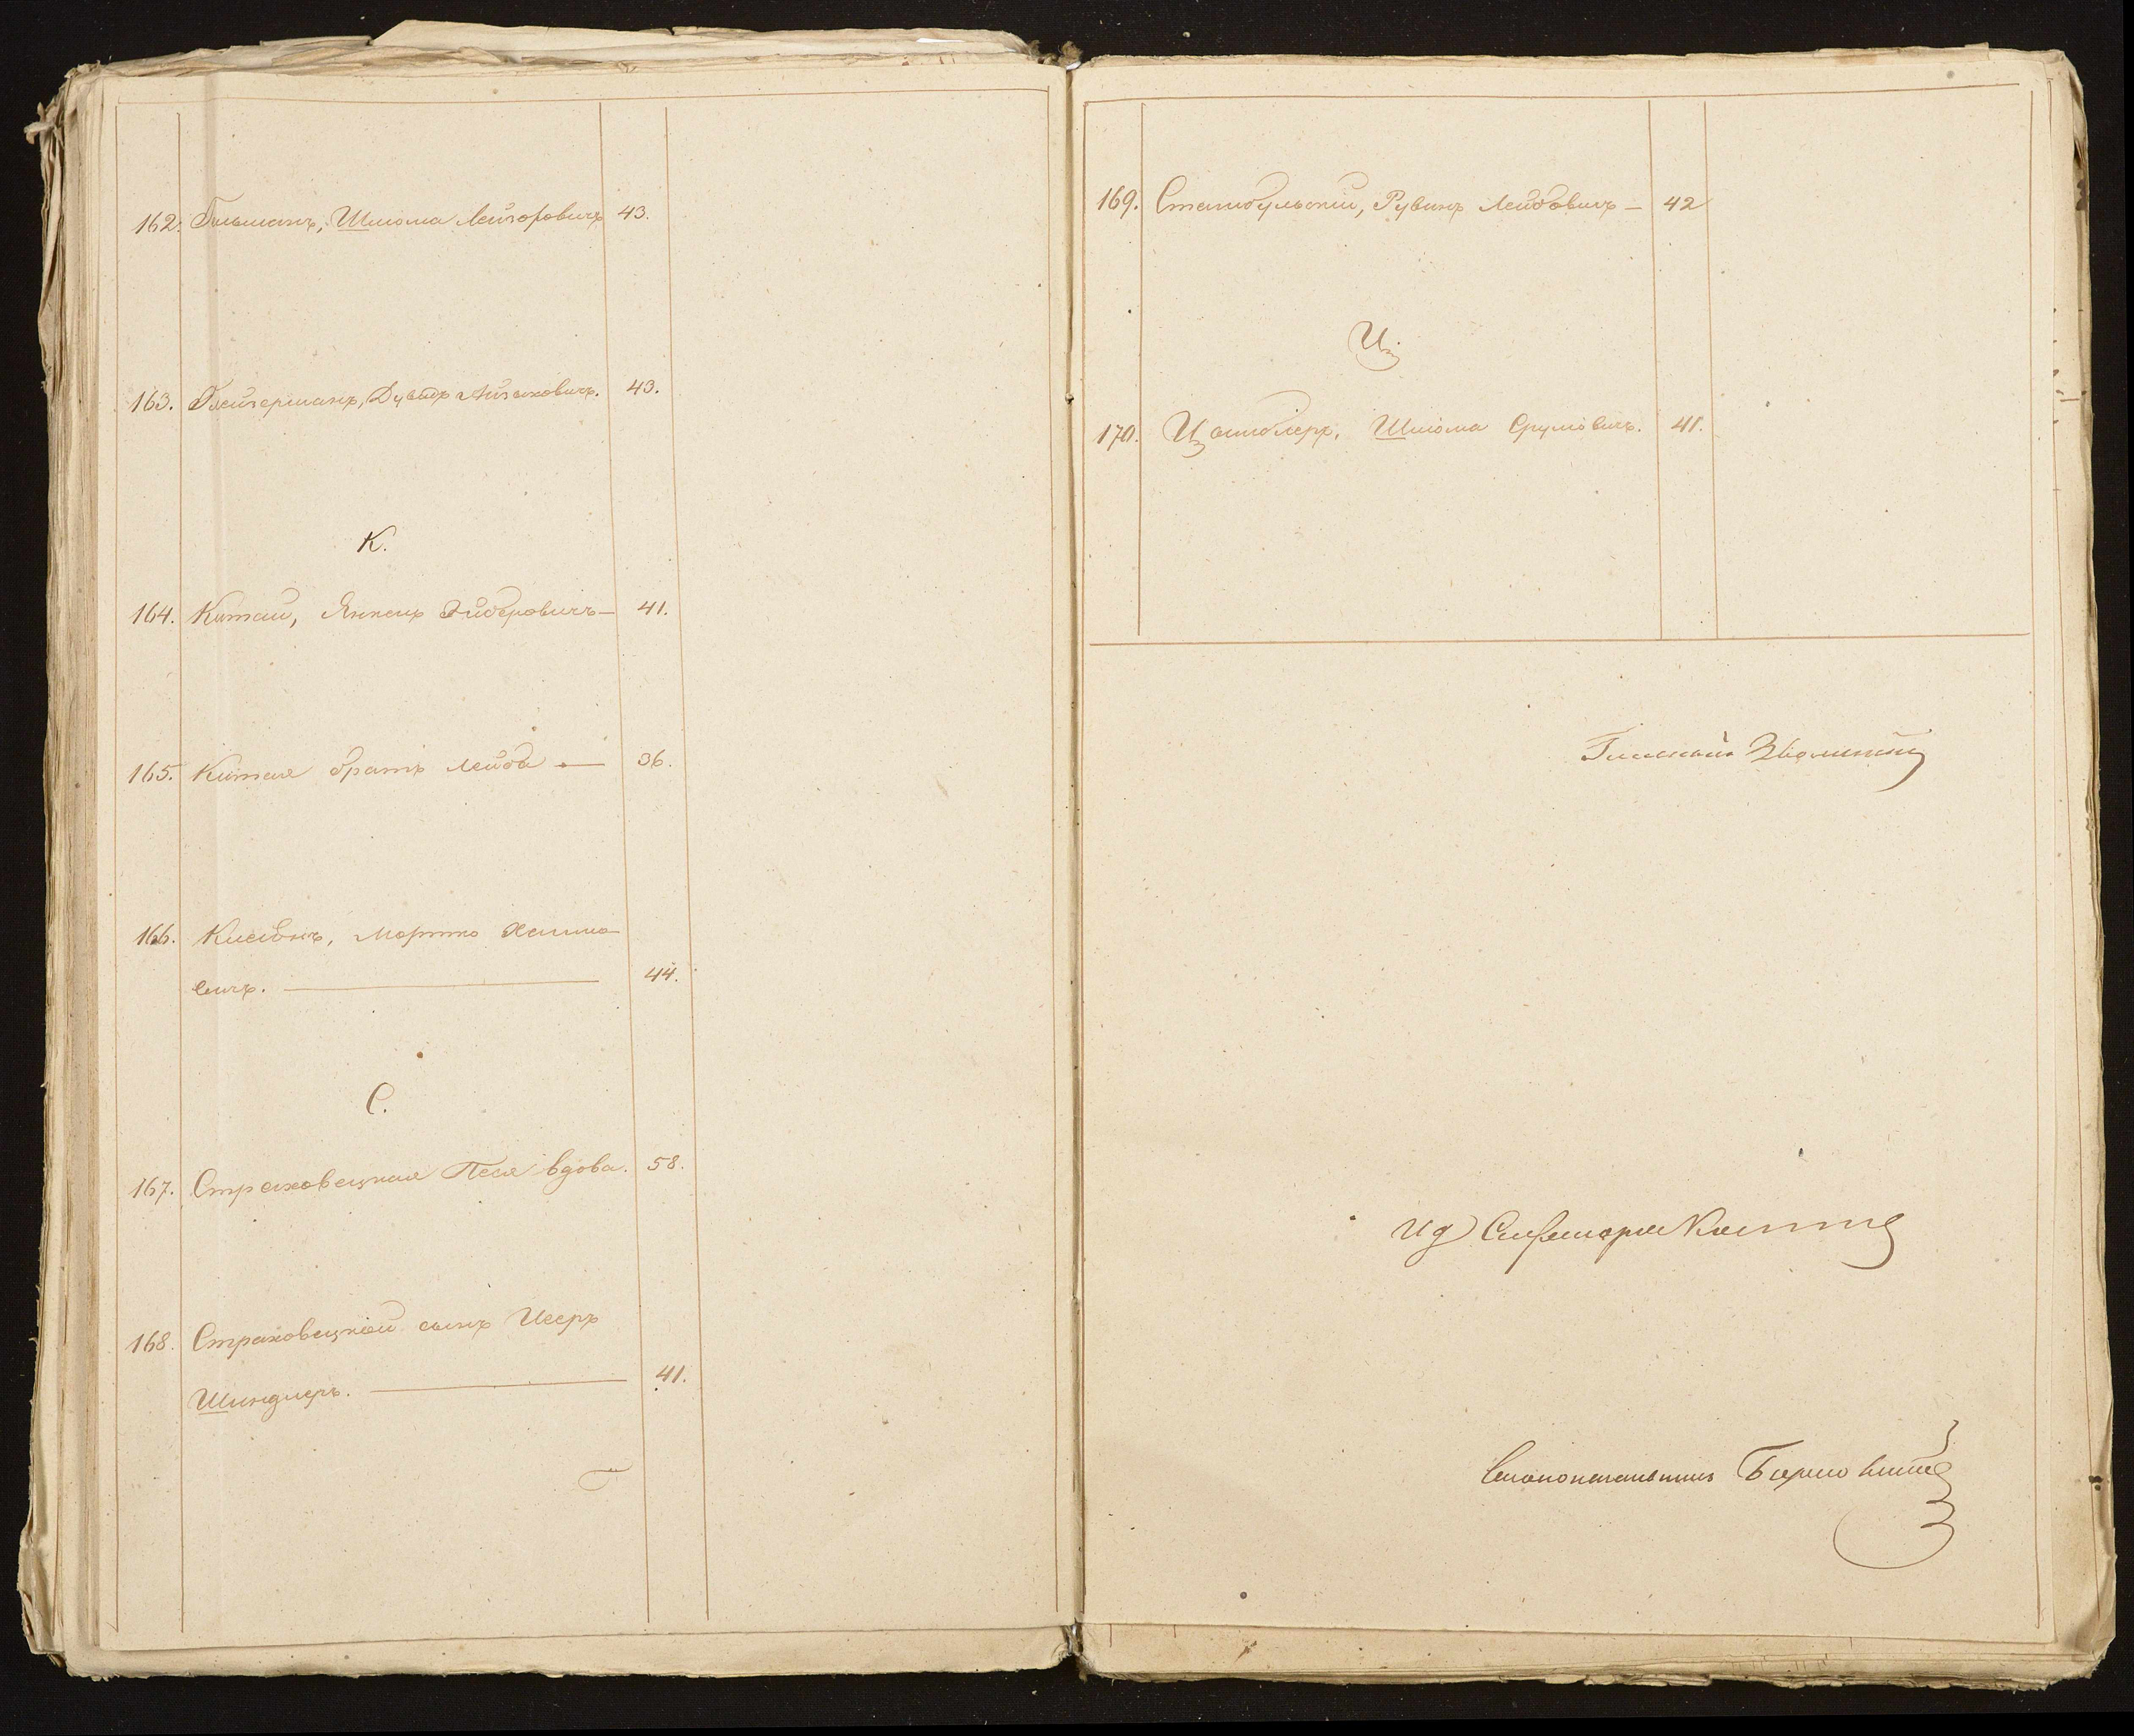 162. Гильманъ, Шлома Лейзоровичъ 43.
163. Гейзерманъ, Дувидъ Айзиковичъ. 43.
К.
164. Китай, Янкель Эйберовичъ — 41.
165. Китая братъ Лейба — 36.
166. Мортко Хаимо-
вичъ. — 44.
С.
167. Страховецкая Песя вдова. 58.
168. Страховецкой сынъ Исеръ
Шиндлеръ. — 41.
169. Стамбульскій, Рувинъ Лейбовичъ — 42
Ц.
170. Цымблеръ, Шлома Срулевичъ. 41.
Гласный
ИД Секретаря
Столоначальникъ